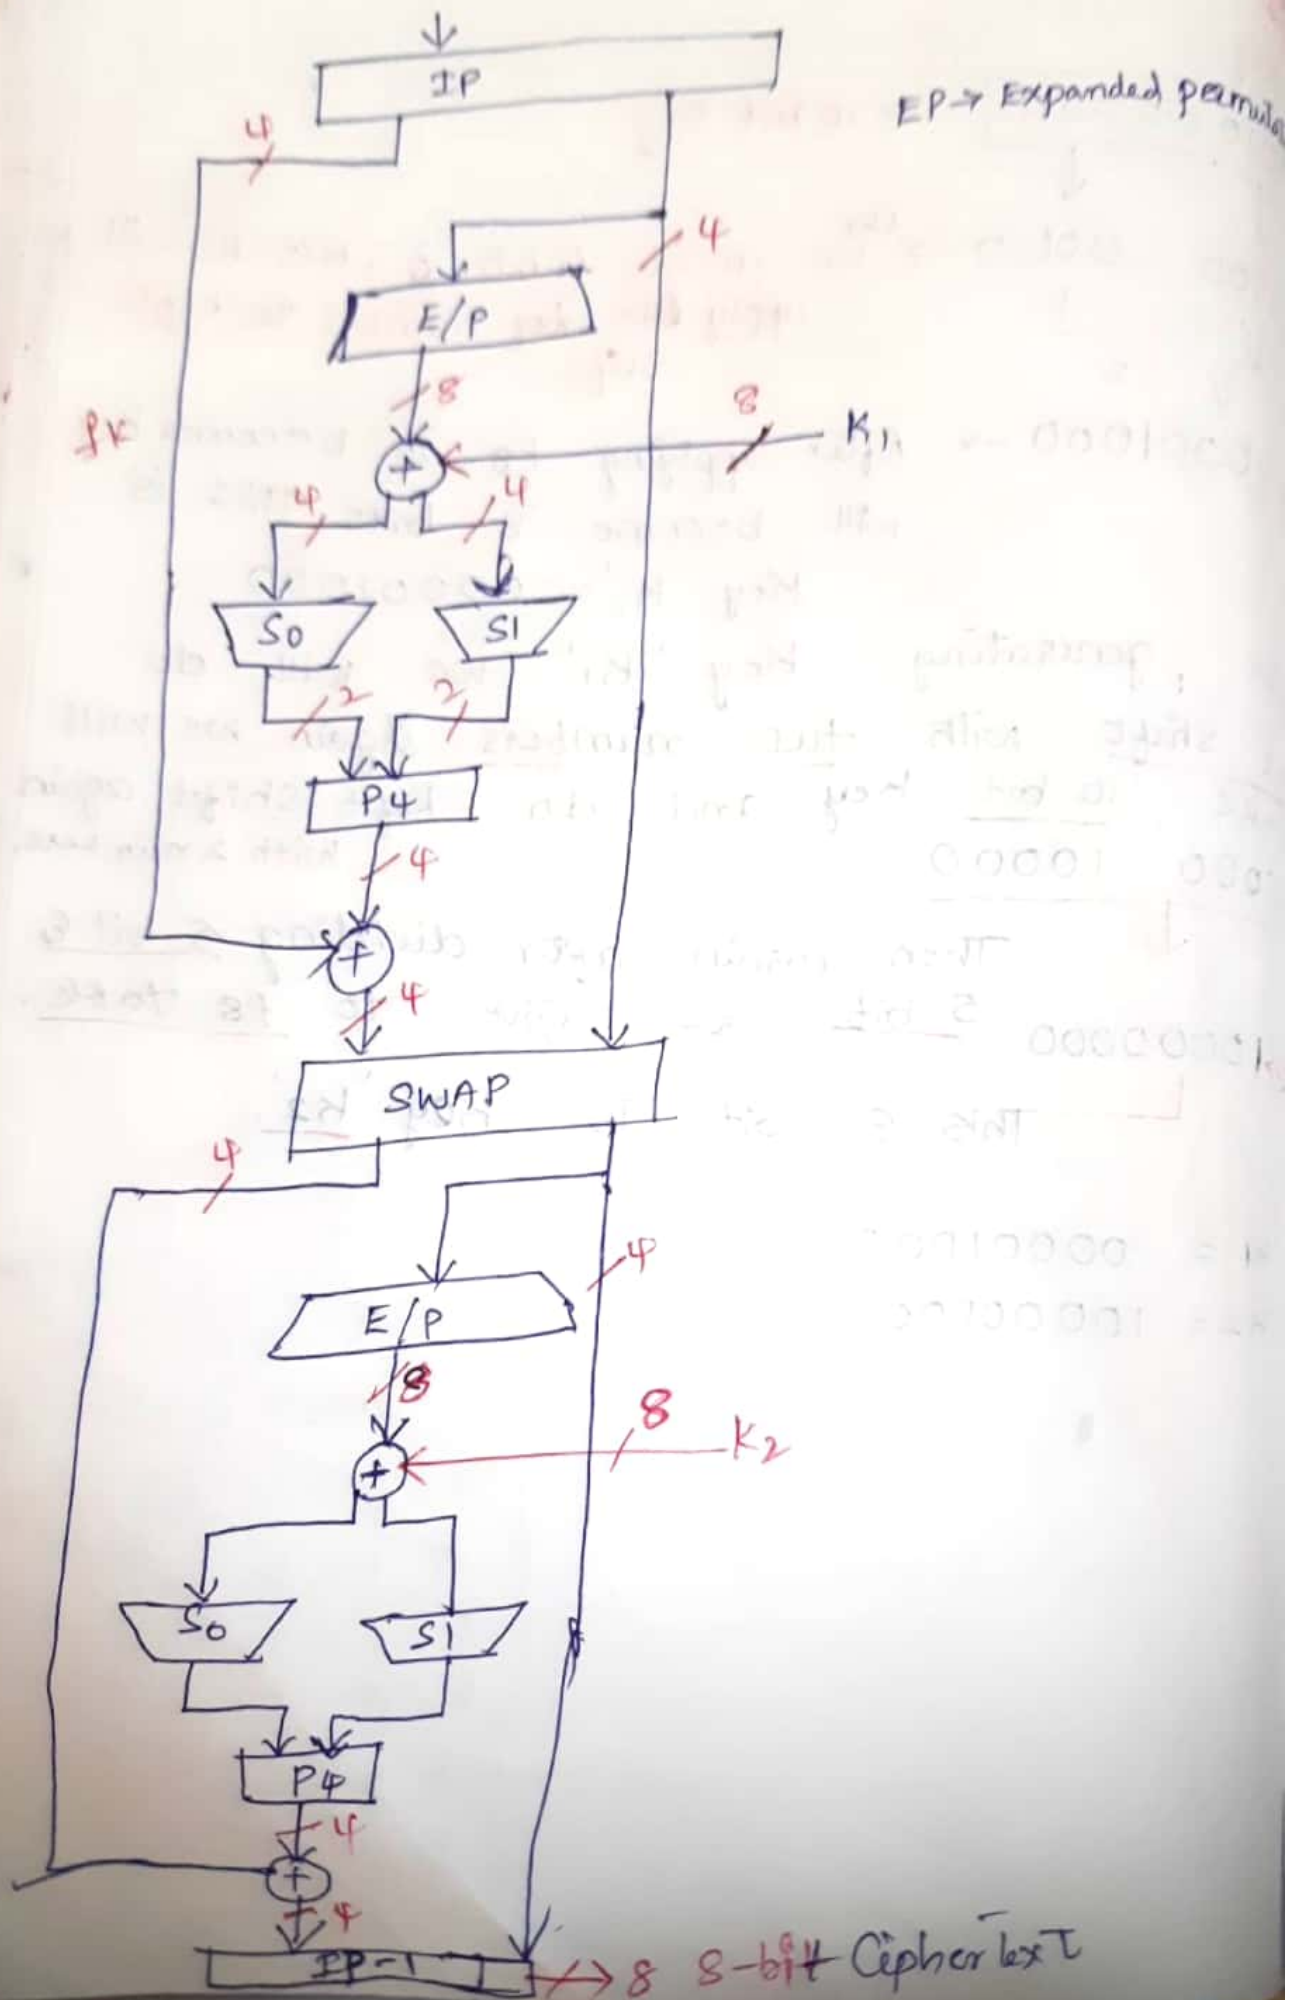 IP
EP → Expanded
4
4
E/P
8
8
K1
fk
+
4
4
S0
S1
2
2
P4
4
+
4
SWAP
4
4
E/P
8
8
K2
+
S0
S1
P4
4
+
4
IP-1
8 8-bit Ciphertext